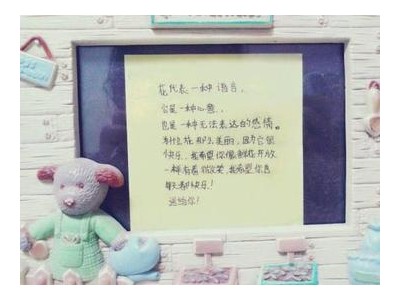 花代表一种语言,
它是一种心意,
也是一种无法表达的感情。
为什么花那么美丽,因为它很
快乐,我希望你像鲜花开放
一样有着的微笑,我希望你每
天都快乐!
送给你!